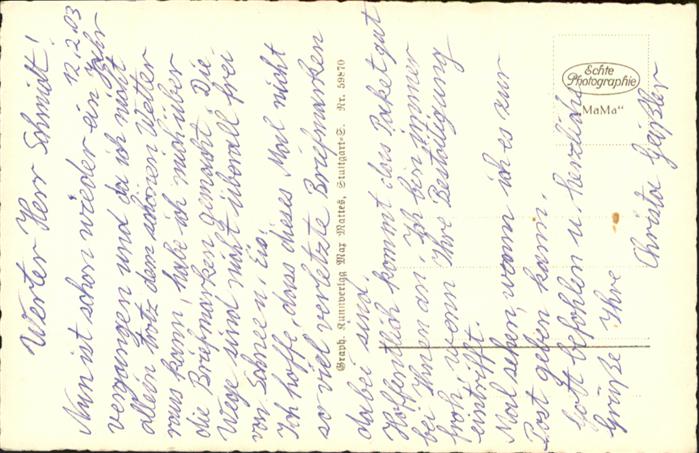 12.2.03
Werter Herr Schmidt!
Nun ist schon wieder ein Jahr
vergangen und da ich nicht
allein trotz dem schönen Wetter
raus kann, habe ich mich über
die Briefmarken gemacht. Die
Wege sind nicht überall frei
von Schnee u. Eis.
Ich hoffe, dass dieses Mal nicht
so viel verletzte Briefmarken
dabei sind.
Hoffentlich kommt das Paket gut
bei Ihnen an. Ich bin immer
froh, wenn Ihre Bestätigung
eintrifft.
Mal sehen, wann ich es zur
Post geben kann.
Gott befohlen u. herzliche
Grüße Ihre
Christa Geißler
Graph. Kunstverlag Max Mattes, Stuttgart-S. Nr. 59870
Echte
Photographie
„MaMa“